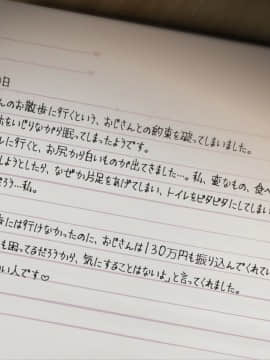 日
んのお散歩に行くという、おじさんとの約束を破ってしまいました。
をいじりながら眠ってしまったようです。
に行くと、お尻から白いものが出てきました…。私、変なもの、食べ
しようとしたり、なぜか片足をあげてしまい、トイレをビタビタにしてしまい
ろう…私。
歩には行けなかったのに、おじさんは130万円も振り込んでくれてい
も困ってるだろうから、気にすることはないよ」と言ってくれました。
い人です♡